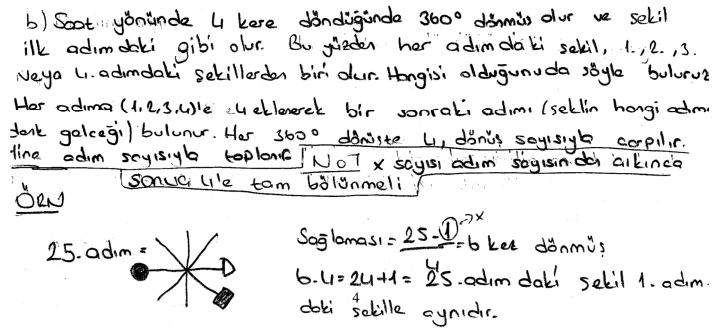 b) Saat yönünde 4 kere döndüğünde 360° dönmüş olur ve şekil
ilk adımdaki gibi olur. Bu yüzden her adımdaki şekil, 1., 2., 3.
veya 4. adımdaki şekillerden biri olur. Hangisi olduğunuda şöyle buluruz
Her adıma (1,2,3,4)'e 4 eklenerek bir sonraki adımı (şeklin hangi adıma
denk geleceği) bulunur. Her 360° dönüşte 4, dönüş sayısıyla çarpılır.
Yine adım sayısıyla toplanır NOT x sayısı adım sayısından çıkınca
sonuç 4'e tam bölünmeli
ÖRN
25. adım = Sağlaması = 25-1 →x = 6 kez dönmüş
4
6.4=24+1= 25. adımdaki şekil 1. adım-
daki şekille aynıdır.